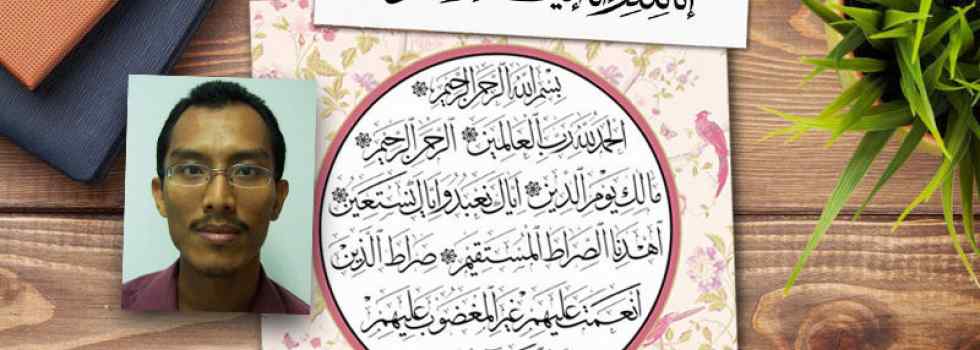 بسم الله الرحمن الرحيم
الحمد لله رب العالمين الرحمن الرحيم
مالك يوم الدين اياك نعبد و اياك نستعين
اهدنا الصراط المستقيم صراط الذين
أنعمت عليهم غير المغضوب عليهم